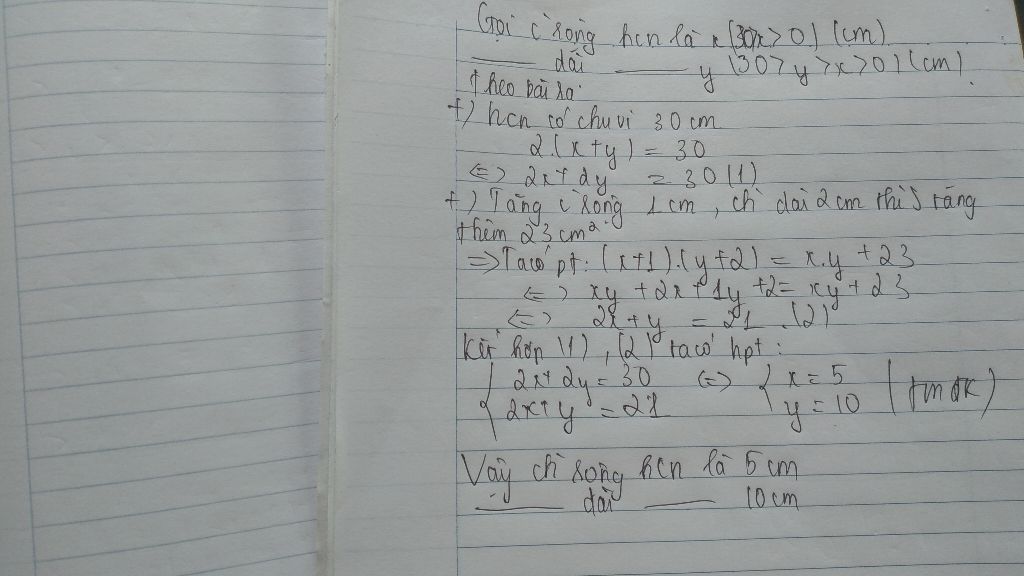 Gọi c rộng hcn là x (30>x>0) (cm)
—— dài —— y (30>y>x>0) (cm).
Theo bài ra:
+) hcn có chu vi 30 cm
2.(x+y) = 30
<=> 2x+2y = 30 (1)
+) Tăng c rộng 1cm, ch dài 2cm thì S tăng
thêm 23 cm²:
=> Ta có pt: (x+1).(y+2) = x.y + 23
<=> xy + 2x + 1y + 2 = xy + 23
<=> 2x + y = 21 (2)
Kết hợp (1), (2) ta có hpt:
{ 2x+2y = 30 <=> { x = 5 (tmđk)
2x+y = 21 y = 10
Vậy ch rộng hcn là 5 cm
—— dài —— 10 cm